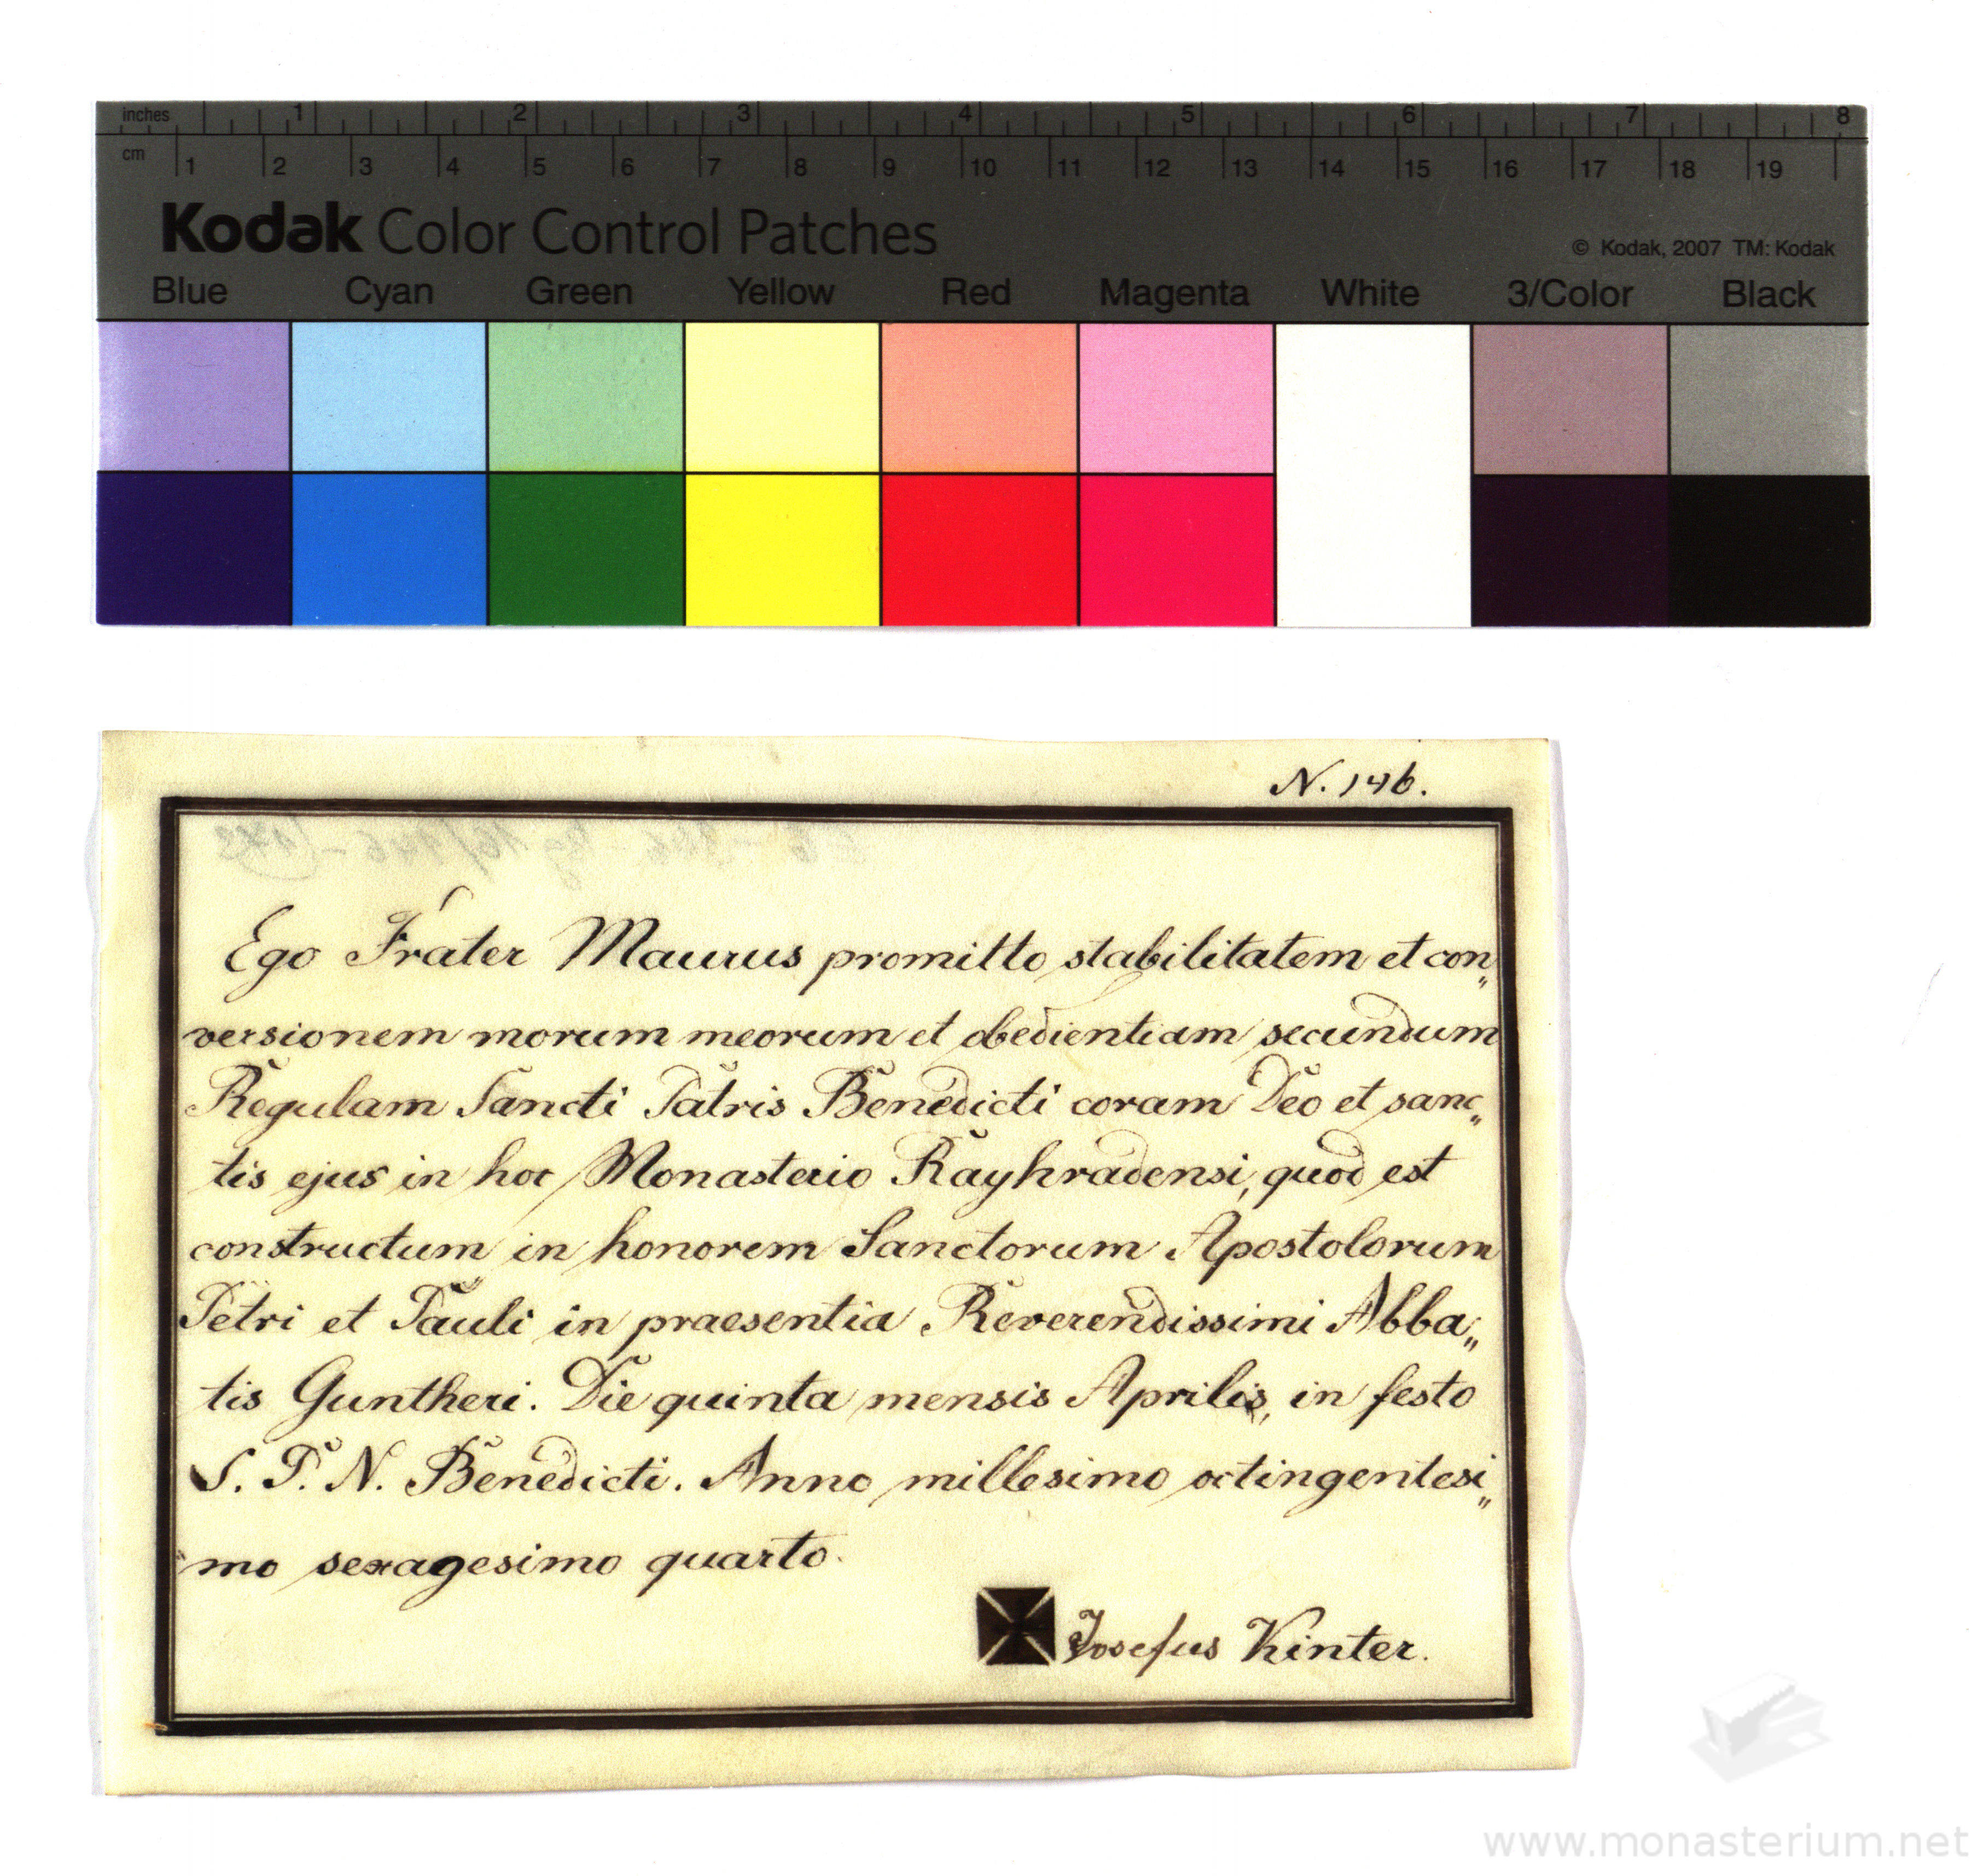 inches 1 2 3 4 5 6 7 8
cm 1 2 3 4 5 6 7 8 9 10 11 12 13 14 15 16 17 18 19
Kodak Color Control Patches
© Kodak, 2007 TM: Kodak
Blue Cyan Green Yellow Red Magenta White 3/Color Black
N. 146.
Ego Frater Maurus promitto stabilitatem et con„
versionem morum meorum et obedientiam secundum
Regulam Sancti Patris Benedicti coram Deo et sanc„
tis ejus in hoc Monasterio Rayhradensi, quod est
constructum in honorem Sanctorum Apostolorum
Petri et Pauli in praesentia Reverendissimi Abba„
tis Guntheri. Die quinta mensis Aprilis, in festo
S. P. N. Benedicti. Anno millesimo octingentesi„
mo sexagesimo quarto.
Josefus Kinter.
www.monasterium.net